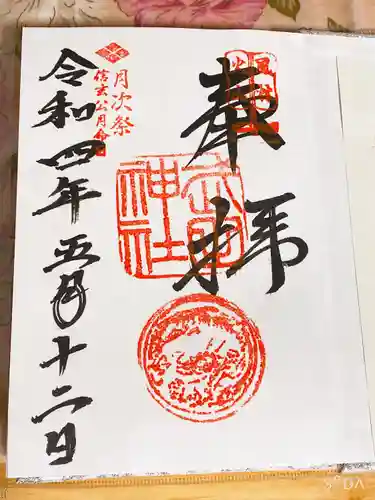 奉拝
武田神社
月次祭
信玄公月命日
令和四年五月十二日